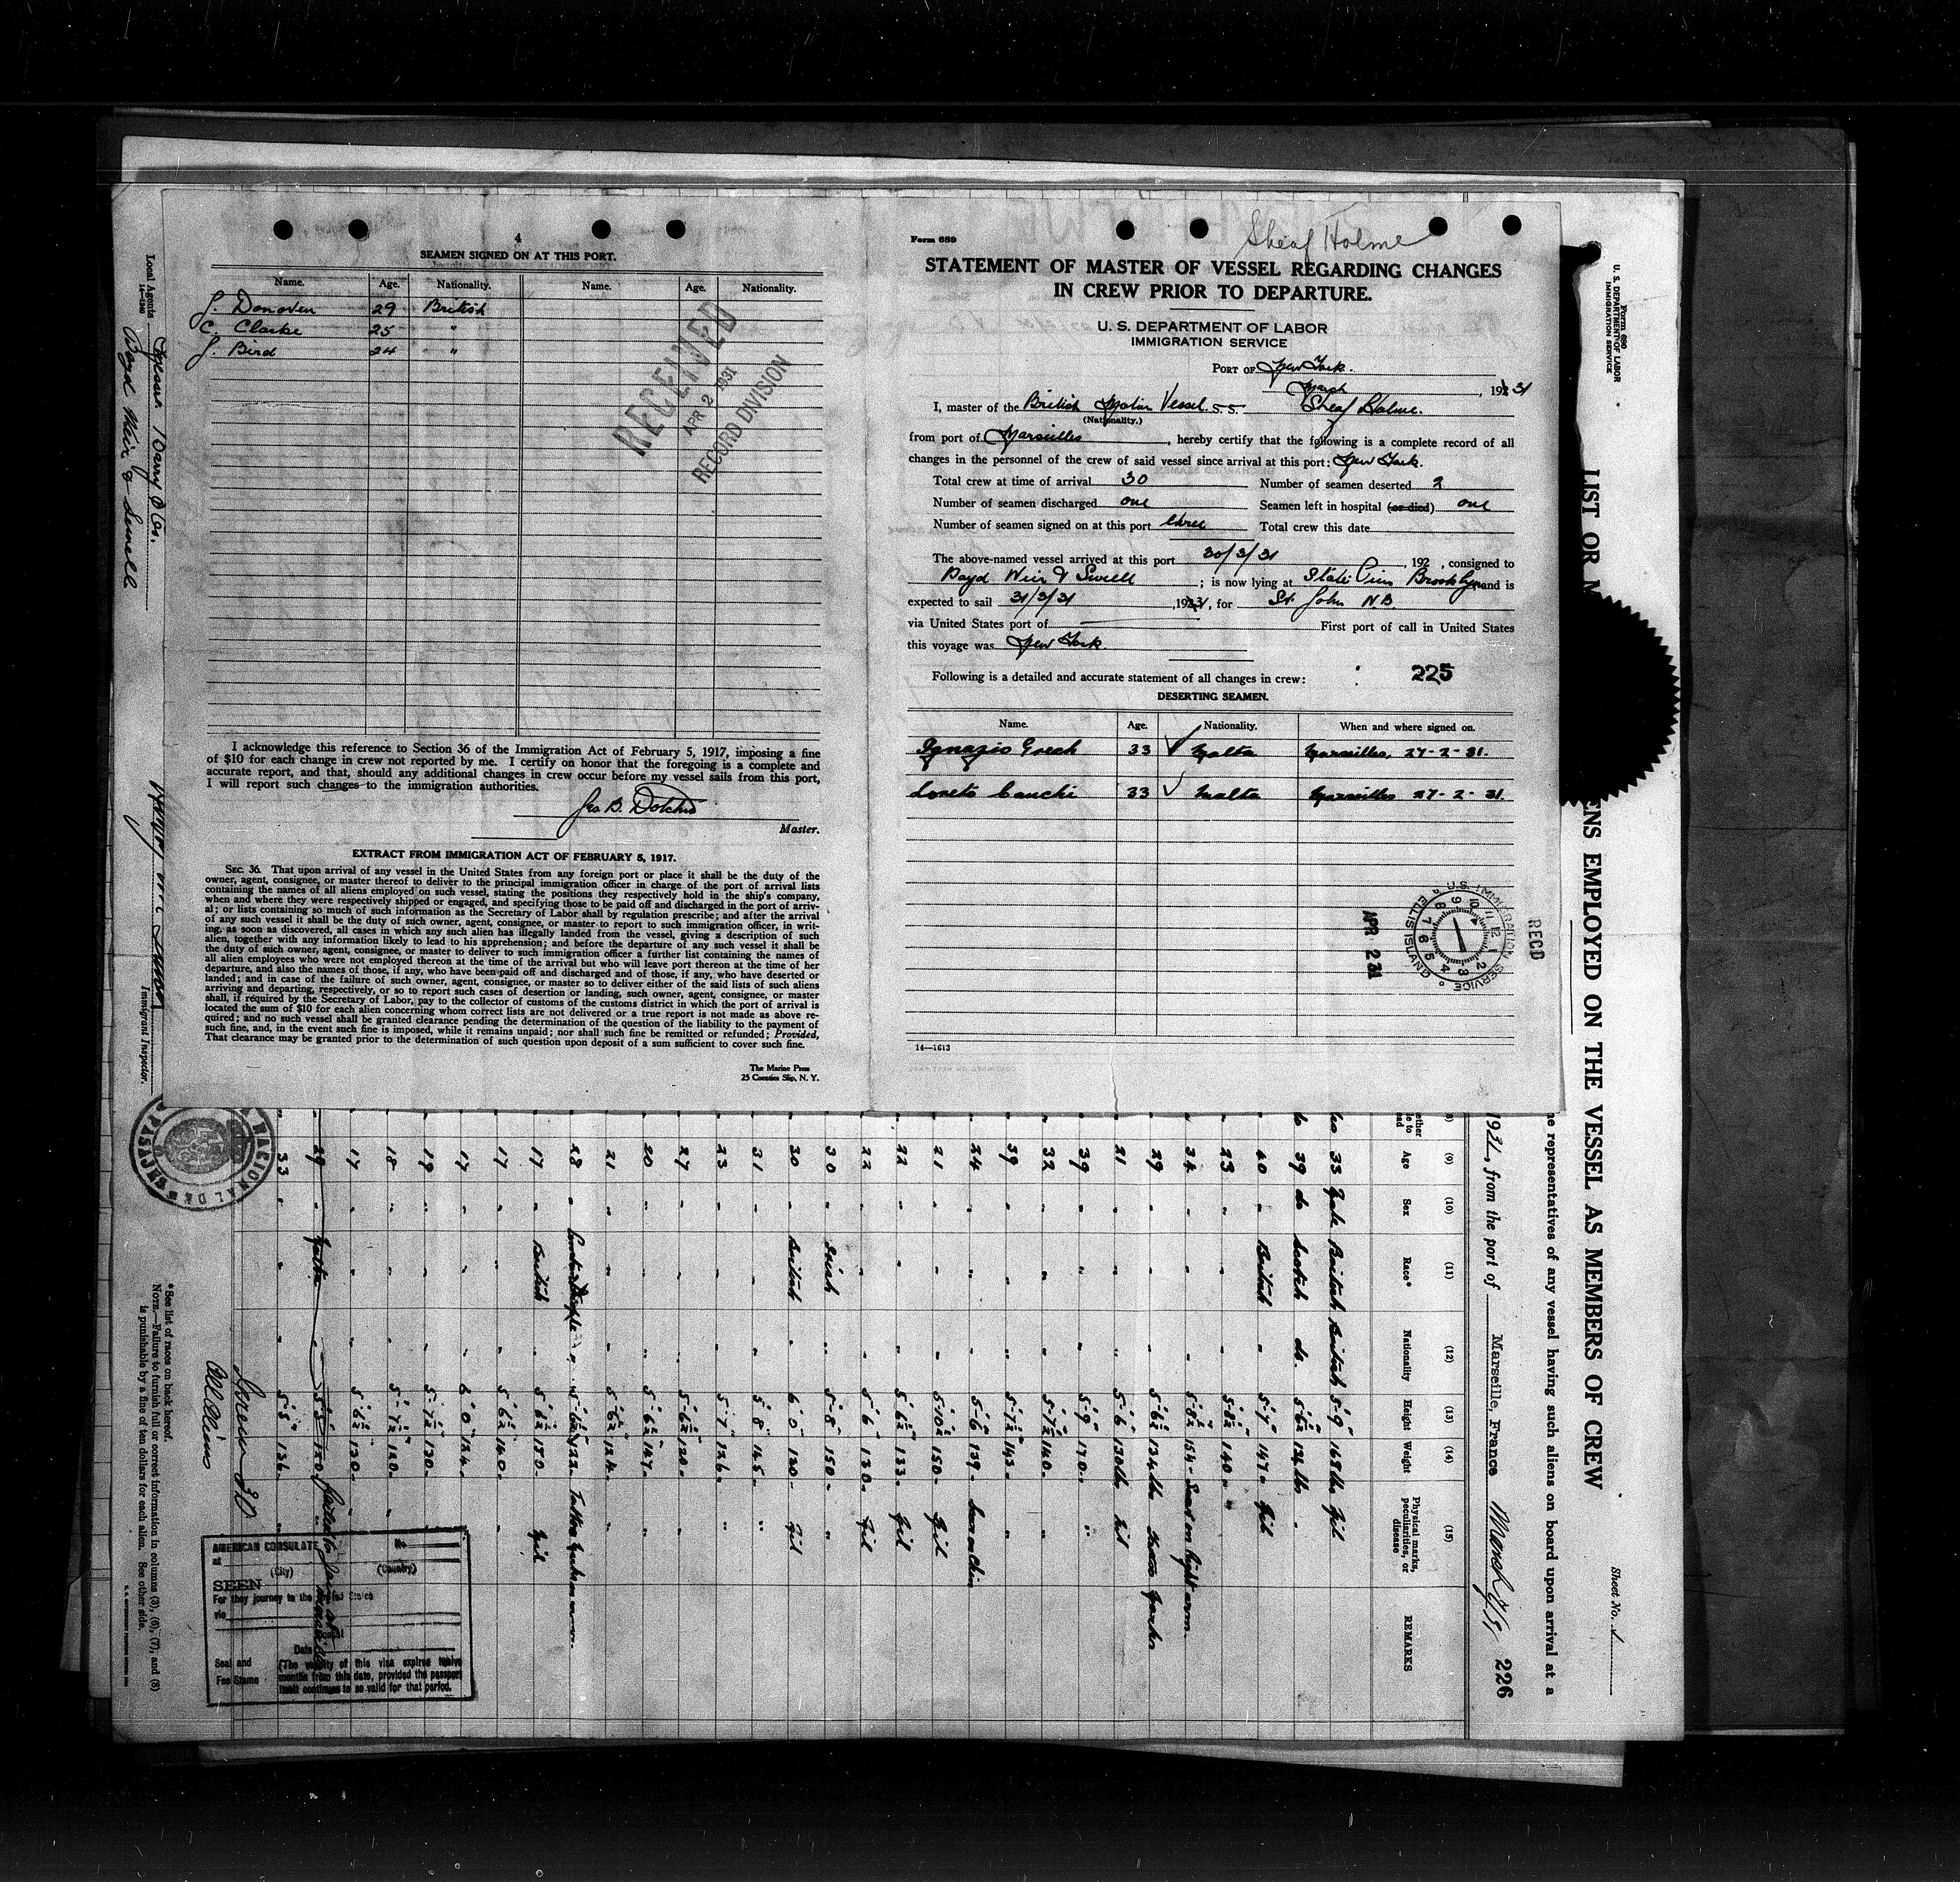 4
SEAMEN SIGNED ON AT THIS PORT.
Name. Age. Nationality. Name. Age. Nationality.
J. Donoven 29 British
C. Clarke 25 "
J. Bird 24 "
RECEIVED
APR 2 1931
RECORD DIVISION
I acknowledge this reference to Section 36 of the Immigration Act of February 5, 1917, imposing a fine
of $10 for each change in crew not reported by me. I certify on honor that the foregoing is a complete and
accurate report, and that, should any additional changes in crew occur before my vessel sails from this port,
I will report such changes to the immigration authorities.
Geo B. Dotchin
Master.
EXTRACT FROM IMMIGRATION ACT OF FEBRUARY 5, 1917.
SEC. 36. That upon arrival of any vessel in the United States from any foreign port or place it shall be the duty of the
owner, agent, consignee, or master thereof to deliver to the principal immigration officer in charge of the port of arrival lists
containing the names of all aliens employed on such vessel, stating the positions they respectively hold in the ship's company,
when and where they were respectively shipped or engaged, and specifying those to be paid off and discharged in the port of arriv-
al; or lists containing so much of such information as the Secretary of Labor shall by regulation prescribe; and after the arrival
of any such vessel it shall be the duty of such owner, agent, consignee, or master to report to such immigration officer, in writ-
ing, as soon as discovered, all cases in which any such alien has illegally landed from the vessel, giving a description of such
alien, together with any information likely to lead to his apprehension; and before the departure of any such vessel it shall be
the duty of such owner, agent, consignee, or master to deliver to such immigration officer a further list containing the names of
all alien employees who were not employed thereon at the time of the arrival but who will leave port thereon at the time of her
departure, and also the names of those, if any, who have been paid off and discharged and of those, if any, who have deserted or
landed; and in case of the failure of such owner, agent, consignee, or master so to deliver either of the said lists of such aliens
arriving and departing, respectively, or so to report such cases of desertion or landing, such owner, agent, consignee, or master
shall, if required by the Secretary of Labor, pay to the collector of customs of the customs district in which the port of arrival is
located the sum of $10 for each alien concerning whom correct lists are not delivered or a true report is not made as above re-
quired; and no such vessel shall be granted clearance pending the determination of the question of the liability to the payment of
such fine, and, in the event such fine is imposed, while it remains unpaid; nor shall such fine be remitted or refunded; Provided,
That clearance may be granted prior to the determination of such question upon deposit of a sum sufficient to cover such fine.
The Marine Press
25 Coenties Slip, N. Y.
Form 689
Sheaf Holme
STATEMENT OF MASTER OF VESSEL REGARDING CHANGES
IN CREW PRIOR TO DEPARTURE.
U. S. DEPARTMENT OF LABOR
IMMIGRATION SERVICE
PORT OF New York.
March, 1931
I, master of the British Motor Vessel S. S. Sheaf Holme.
(Nationality.)
from port of Marseilles, hereby certify that the following is a complete record of all
changes in the personnel of the crew of said vessel since arrival at this port: New York.
Total crew at time of arrival 30 Number of seamen deserted 2
Number of seamen discharged one Seamen left in hospital (or died) one
Number of seamen signed on at this port three Total crew this date
The above-named vessel arrived at this port 30/3/31, 192 , consigned to
Boyd Weir & Sewell; is now lying at State Pier Brooklyn and is
expected to sail 31/3/31, 1931, for St. John N B
via United States port of First port of call in United States
this voyage was New York.
Following is a detailed and accurate statement of all changes in crew: 225
DESERTING SEAMEN.
Name. Age. Nationality. When and where signed on.
Ignazio Grech 33 Malta Marseilles, 27-2-31.
Loreto Cauchi 33 Malta Marseilles 27-2-31.
APR 2 31
U.S. IMMIGRATION SERVICE
ELLIS ISLAND
RECD
14—1613
Form 680
U. S. DEPARTMENT OF LABOR
IMMIGRATION SERVICE
LIST OR
ENS EMPLOYED ON THE VESSEL AS MEMBERS OF CREW
Sheet No. 1
he representatives of any vessel having such aliens on board upon arrival at a
1931, from the port of Marseille, France March
226
(9) (10) (11) (12) (13) (14) (15)
Age Sex Race* Nationality Height Weight Physical marks, peculiarities, or disease REMARKS
33 Male British British 5-9 168 lbs Nil
39 do Scotish do. 5-6½ 124 lbs
40 " British " 5-7 147 Nil
23 " " " 5-8½ 140
34 " " " 5-8½ 154 Scar on right arm.
29 " " " 5-6½ 134 lbs
21 " " " 5-6 130 lbs Nil
39 " " " 5-9 170
32 " " " 5-7½ 140
39 " " " 5-7½ 143
24 " " " 5-6 139 Scar on Chin
21 " " " 5-10½ 150 Nil
22 " " " 5-6½ 133 Nil
22 " " " 5-6 130 Nil
30 " Irish " 5-8 150
30 " British " 6-0 130 Nil
31 " " " 5-8 145
23 " " " 5-7 126
27 " " " 5-6½ 120
20 " " " 5-6½ 147
21 " " " 5-6½ 124
28
17 " British " 5-8½ 150 Nil
17 " " " 5-6½ 140
17 " " " 6-0 124
19 " " " 5-7½ 130
18 " " " 5-7½ 120
17 " " " 5-6½ 130
29 " " 5-5 120 failed to Join at Marseille
33 " " " 5-5 136
Crew 30
AMERICAN CONSULATE No
at
(City) (Country)
SEEN
For the journey to the United States
via
Date
Seal and
Fee Stamp
(The validity of this visa expires twelve
months from this date, provided the passport
itself continues to be valid for that period.
* See list of races on back hereof.
NOTE.—Failure to furnish full or correct information in columns (3), (6), (7), and (8)
is punishable by a fine of ten dollars for each alien. See other side.
Local Agents
14—1240
Boyd Weir & Sewell
Immigrant Inspector.